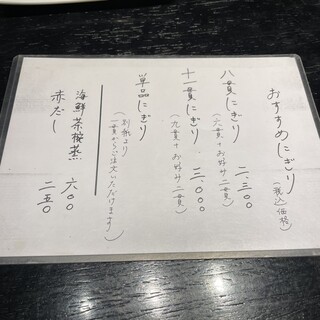 おすすめにぎり（税込価格）
八貫にぎり 二.三〇〇
（六貫＋お好み二貫）
十一貫にぎり 三.〇〇〇
（九貫＋お好み二貫）
単品にぎり
別紙より
（一貫からご注文いただけます）
海鮮茶椀蒸 六〇〇
赤だし 二五〇